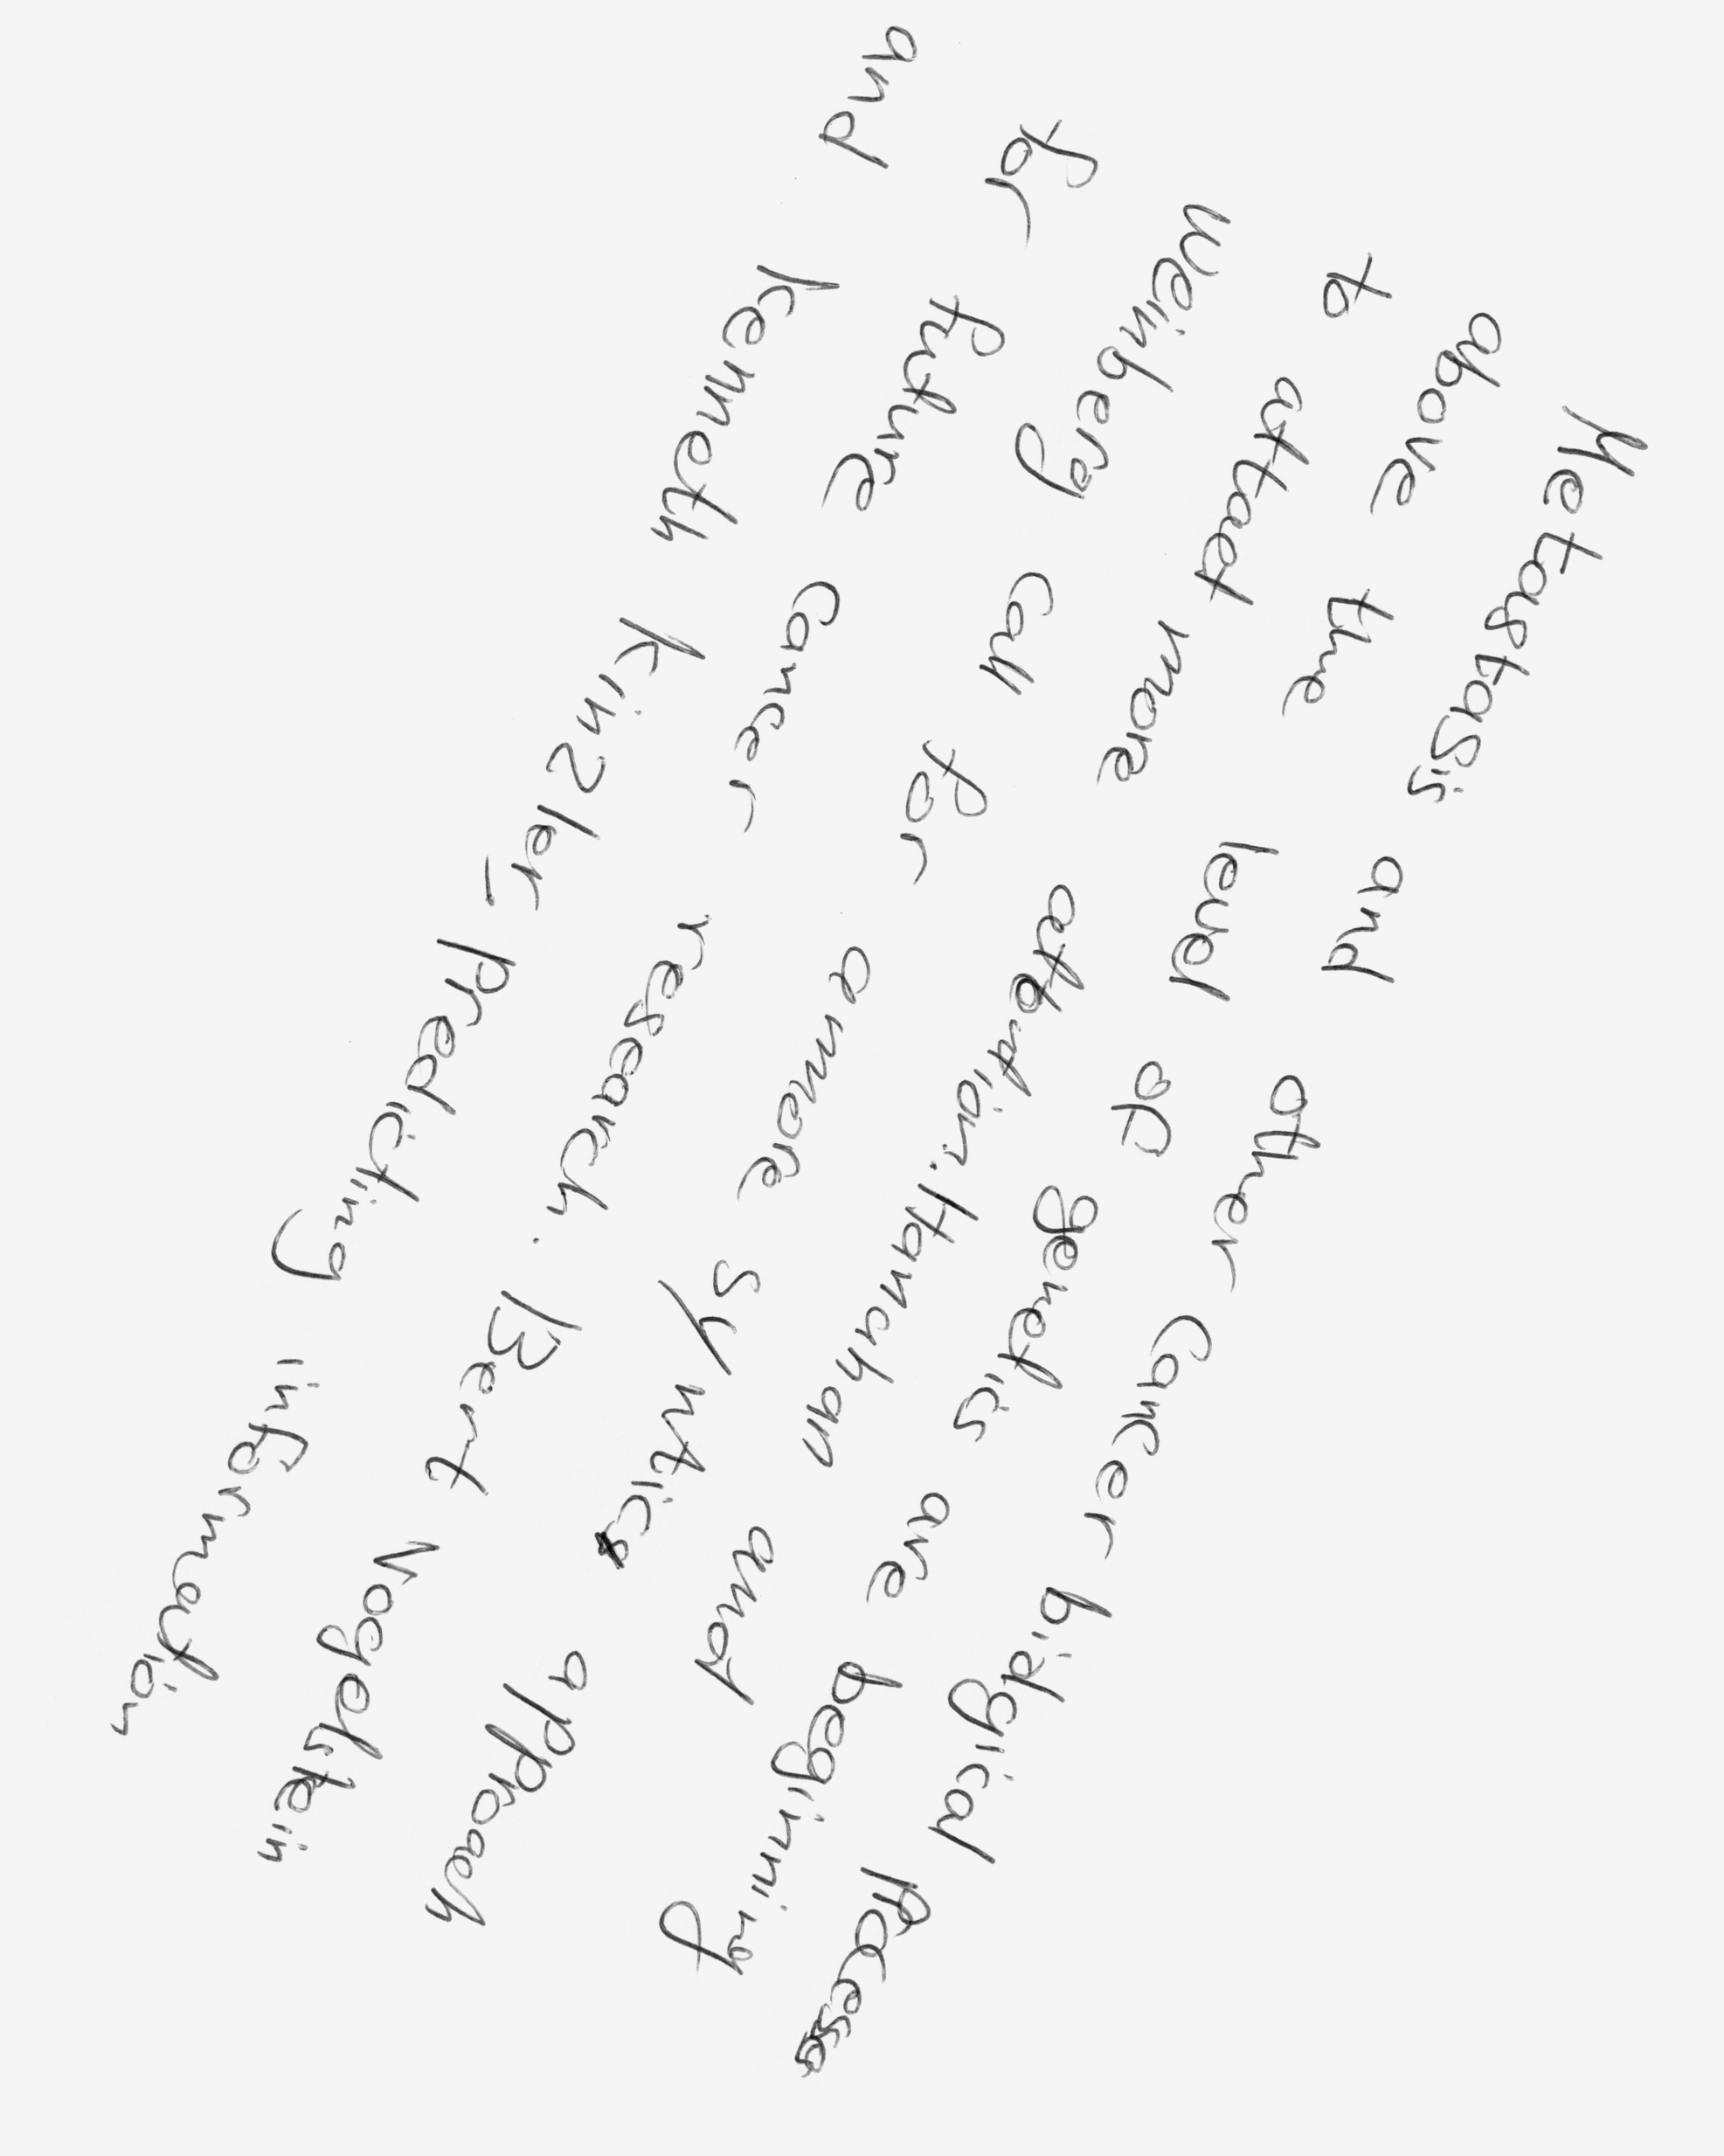 Metastasis and other cancer biolgical Process
above the level of genetics are beginning
to attact more attention. Hanahan and
Weinberg call for a more approach
for future cancer research. Bert Vogelstein
and Kenneth Kinzler - predicting information